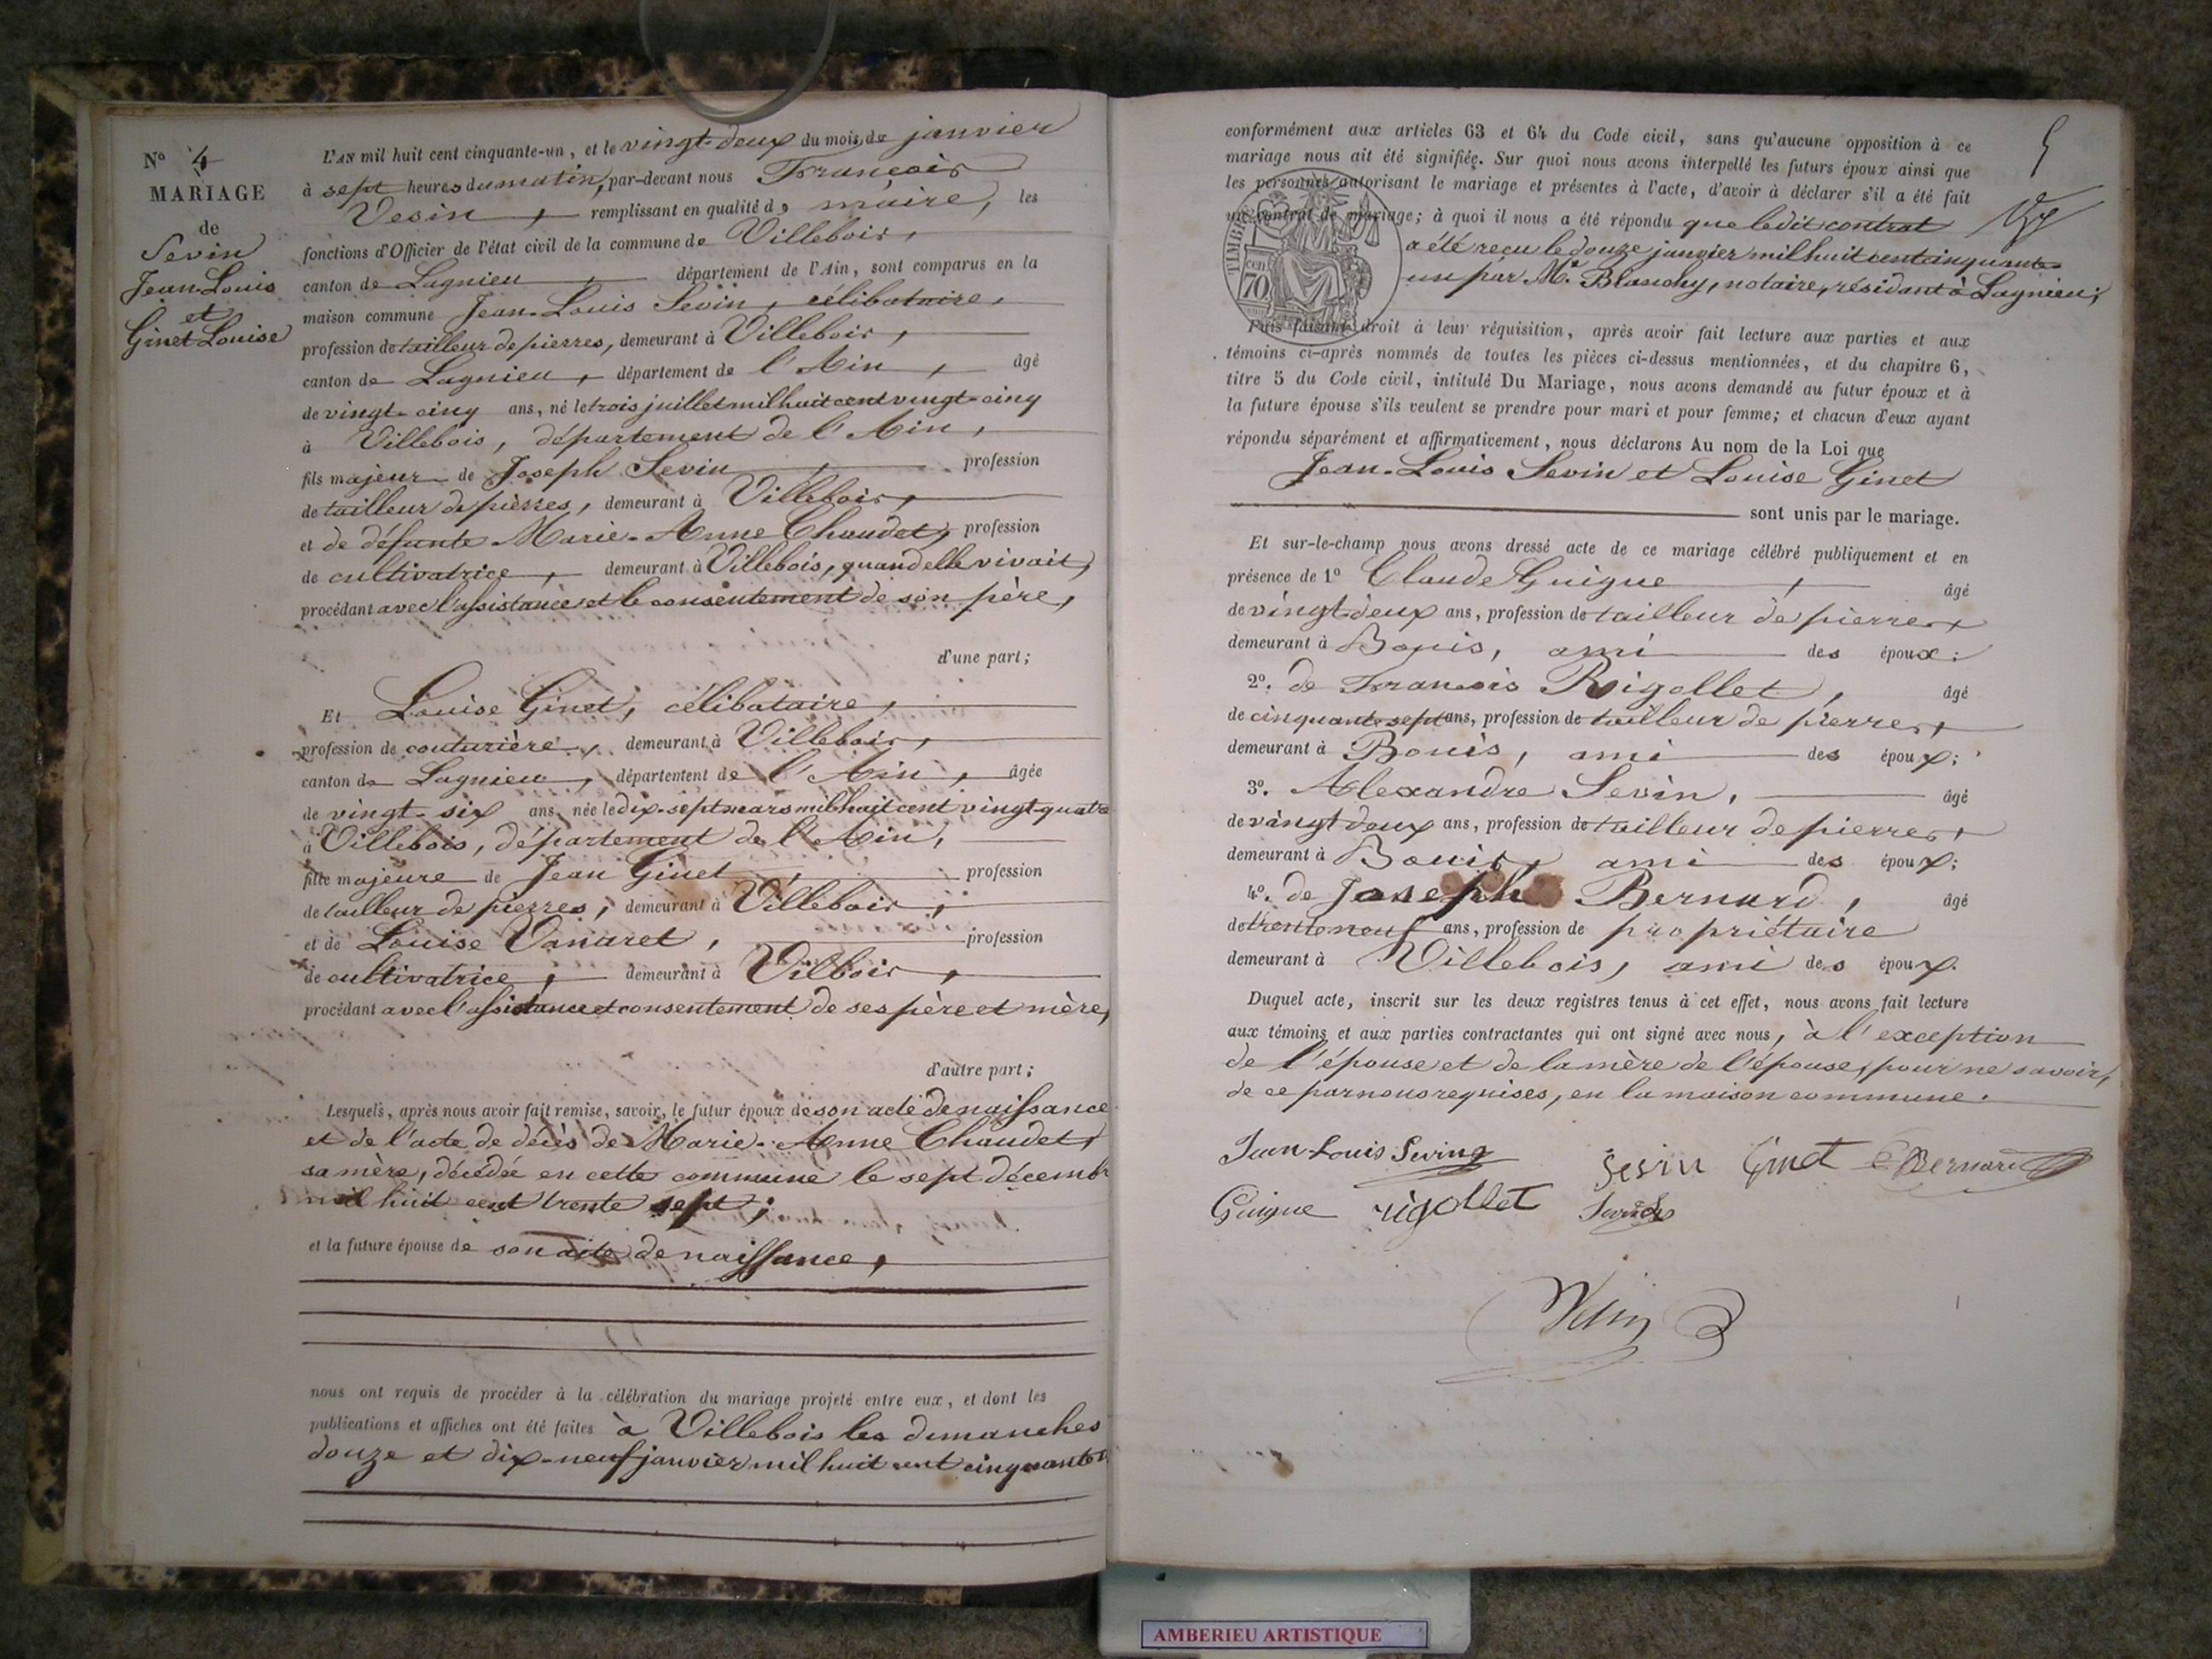 N° 4
MARIAGE
de
Sevin
Jean-Louis
et
Ginet Louise
L'AN mil huit cent cinquante-un, et le vingt-deux du mois de janvier
à sept heures du matin, par-devant nous François
Vesin, remplissant en qualité de maire, les
fonctions d'Officier de l'état civil de la commune de Villebois,
canton de Lagnieu, département de l'Ain, sont comparus en la
maison commune Jean-Louis Sevin, célibataire,
profession de tailleur de pierres, demeurant à Villebois,
canton de Lagnieu, département de l'Ain, âgé
de vingt-cinq ans, né le trois juillet mil huit cent vingt-cinq
à Villebois, département de l'Ain,
fils majeur de Joseph Sevin, profession
de tailleur de pierres, demeurant à Villebois,
et de défunte Marie-Anne Chaudet, profession
de cultivatrice, demeurant à Villebois, quand elle vivait,
procédant avec l'assistance et le consentement de son père,
d'une part;
Et Louise Ginet, célibataire,
profession de couturière, demeurant à Villebois,
canton de Lagnieu, département de l'Ain, âgée
de vingt-six ans, née le dix-sept mars mil huit cent vingt-quatre
à Villebois, département de l'Ain,
fille majeure de Jean Ginet, profession
de tailleur de pierres, demeurant à Villebois,
et de Louise Vanaret, profession
de cultivatrice, demeurant à Vilbois,
procédant avec l'assistance et consentement de ses père et mère,
d'autre part;
Lesquels, après nous avoir fait remise, savoir, le futur époux de son acte de naissance
et de l'acte de décès de Marie-Anne Chaudet,
sa mère, décédée en cette commune le sept décemb
mil huit cent trente sept;
et la future épouse de son acte de naissance,
nous ont requis de procéder à la célébration du mariage projeté entre eux, et dont les
publications et affiches ont été faites à Villebois les dimanches
douze et dix-neuf janvier mil huit cent cinquante
5
conformément aux articles 63 et 64 du Code civil, sans qu'aucune opposition à ce
mariage nous ait été signifiée. Sur quoi nous avons interpellé les futurs époux ainsi que
les personnes autorisant le mariage et présentes à l'acte, d'avoir à déclarer s'il a été fait
un contrat de mariage; à quoi il nous a été répondu que ledit contrat
a été reçu le douze janvier mil huit cent cinquante
un par Me. Blanchy, notaire, résidant à Lagnieu;
TIMBRE
70 cen
Puis faisant droit à leur réquisition, après avoir fait lecture aux parties et aux
témoins ci-après nommés de toutes les pièces ci-dessus mentionnées, et du chapitre 6,
titre 5 du Code civil, intitulé Du Mariage, nous avons demandé au futur époux et à
la future épouse s'ils veulent se prendre pour mari et pour femme; et chacun d'eux ayant
répondu séparément et affirmativement, nous déclarons Au nom de la Loi que
Jean-Louis Sevin et Louise Ginet
sont unis par le mariage.
Et sur-le-champ nous avons dressé acte de ce mariage célébré publiquement et en
présence de 1° Claude Guigue, âgé
de vingt-deux ans, profession de tailleur de pierres,
demeurant à Bouis, ami des époux;
2°. de François Rigollet, âgé
de cinquante-sept ans, profession de tailleur de pierres,
demeurant à Bouis, ami des époux;
3°. Alexandre Sevin, âgé
de vingt deux ans, profession de tailleur de pierres,
demeurant à Bouis, ami des époux;
4°. de Joseph Bernard, âgé
de trente neuf ans, profession de propriétaire
demeurant à Villebois, ami des époux.
Duquel acte, inscrit sur les deux registres tenus à cet effet, nous avons fait lecture
aux témoins et aux parties contractantes qui ont signé avec nous, à l'exception
de l'épouse et de la mère de l'épouse, pour ne savoir,
de ce par nous requises, en la maison commune.
Jean-Louis Seving Sevin Ginet Bernard
Guigue rigollet
Vesin
AMBERIEU ARTISTIQUE